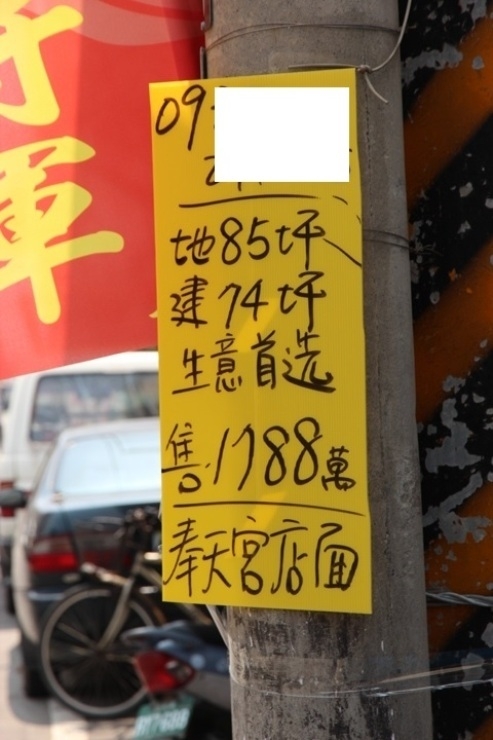 將
軍
09
地85坪
建74坪
生意首选
售1788萬
奉天宮店面